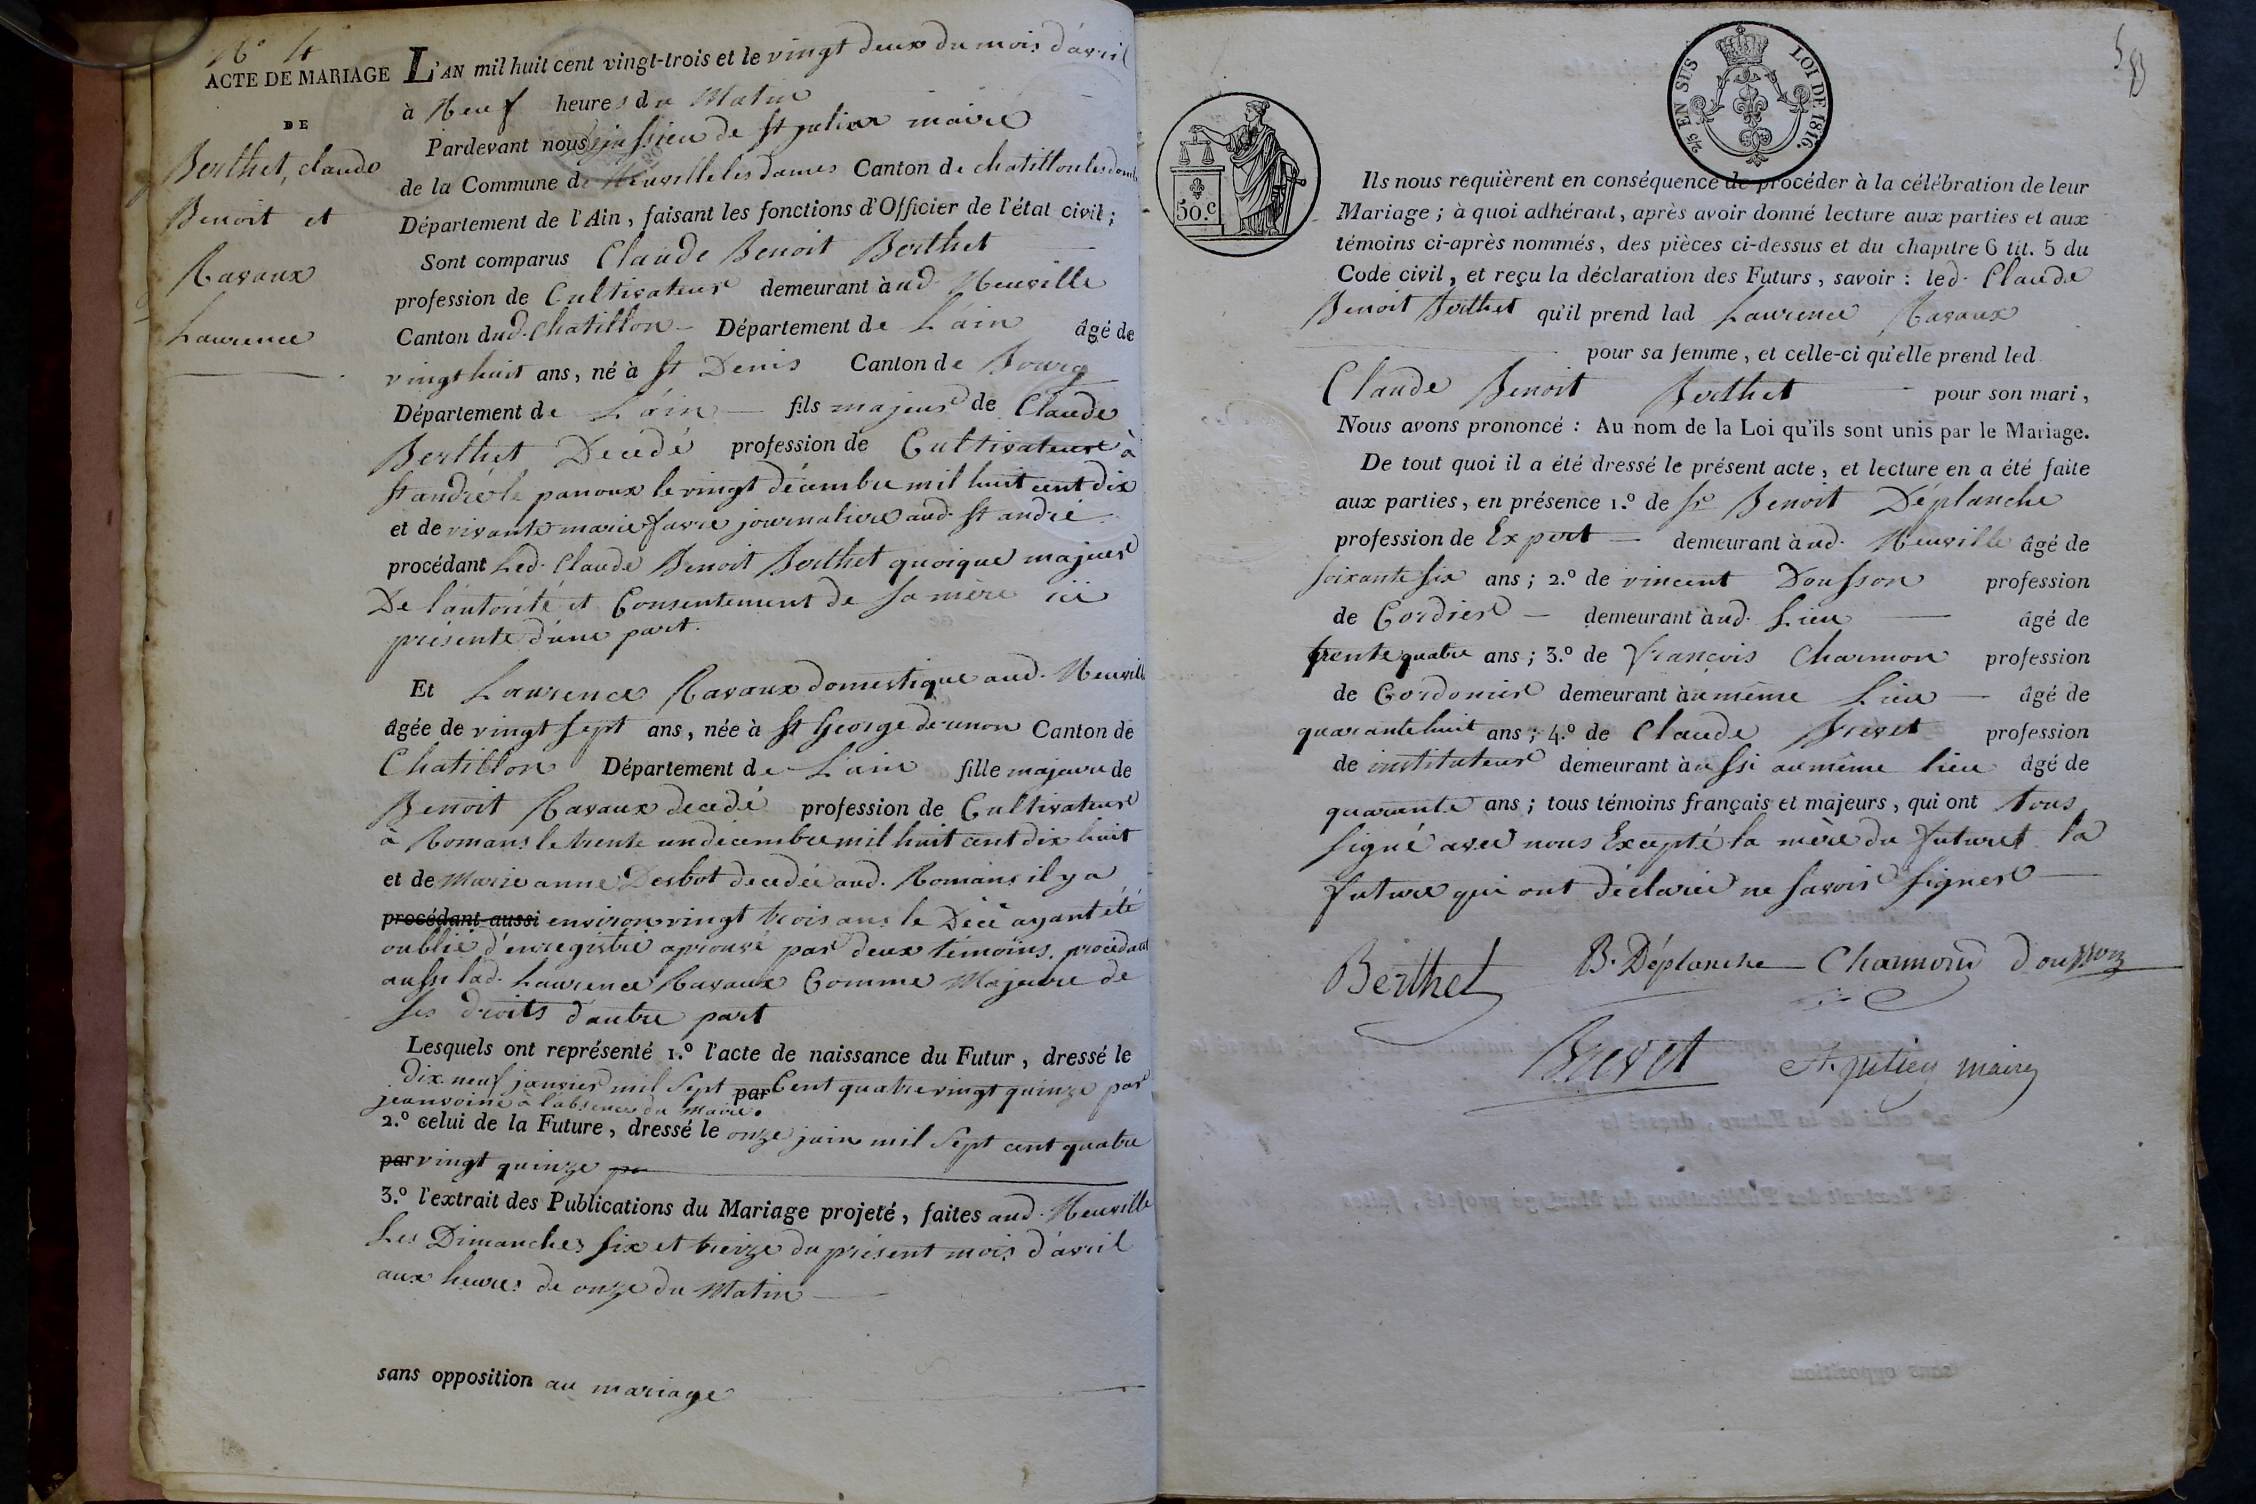 N° 4
ACTE DE MARIAGE
DE
Berthet, claude
Benoit et
Ravaux
Laurence
L'AN mil huit cent vingt-trois et le vingt deux du mois d'avril
à Neuf heures du Matin
Pardevant nous jussieu de St julien maire
de la Commune de Neuville les dames Canton de chatillon les domb
Département de l'Ain, faisant les fonctions d'Officier de l'état civil;
Sont comparus Claude Benoit Berthet
profession de Cultivateur demeurant à ud. Neuville
Canton dud. Chatillon Département de L'ain âgé de
vingt huit ans, né à St Denis Canton de Bourg
Département de L'ain fils majeur de Claude
Berthet Decedé profession de Cultivateur à
St andré le panoux le vingt décembre mil huit cent dix
et de vivante marie favre journaliere aud. St andré
procédant Led. Claude Benoit Berthet quoique majeur
De l'autorité et Consentement de sa mère ici
présente d'une part.
Et Laurence Ravaux domestique aud. Neuville
âgée de vingt sept ans, née à St George de renon Canton de
Chatillon Département de L'ain fille majeure de
Benoit Ravaux decedé profession de Cultivateur
à Romans le trente un decembre mil huit cent dix huit
et de Marie anne Desbot decedée aud. Romans il y a
procédant aussi environ vingt trois ans le Décé ayant été
oublié d'enregistré aprouvé par deux témoins. procédant
aussi lad. Laurence Ravaux Comme Majeure de
ses droits d'autre part
Lesquels ont représenté 1.º l'acte de naissance du Futur, dressé le
dix neuf janvier mil sept par Cent quatre vingt quinze par
jeanvoine à l'absence du maire.
2.º celui de la Future, dressé le onze juin mil sept cent quatre
par vingt quinze pa
3.º l'extrait des Publications du Mariage projeté, faites aud. Neuville
Les Dimanches six et treize du présent mois d'avril
aux heures de onze du Matin
sans opposition au mariage
50.c
2/5 EN SUS LOI DE 1816.
Ils nous requièrent en conséquence de procéder à la célébration de leur
Mariage; à quoi adhérant, après avoir donné lecture aux parties et aux
témoins ci-après nommés, des pièces ci-dessus et du chapitre 6 tit. 5 du
Code civil, et reçu la déclaration des Futurs, savoir: led. Claude
Benoit Berthet qu'il prend lad Laurence Ravaux
pour sa femme, et celle-ci qu'elle prend led.
Claude Benoit Berthet pour son mari,
Nous avons prononcé: Au nom de la Loi qu'ils sont unis par le Mariage.
De tout quoi il a été dressé le présent acte, et lecture en a été faite
aux parties, en présence 1.º de Sr Benoit Déplanche
profession de Expert demeurant à ud. Neuville âgé de
soixante six ans; 2.º de vincent Dousson profession
de Cordier demeurant à ud. Lieu âgé de
trente quatre ans; 3.º de françois Charmon profession
de Cordonier demeurant à u même Lieu âgé de
quarante huit ans; 4.º de Claude Brevet profession
de instituteur demeurant à ussi au même lieu âgé de
quarante ans; tous témoins français et majeurs, qui ont tous
signé avec nous Excepté la mère du futur et la
future qui ont déclarée ne savoir signer
Berthet B. Déplanche Charmond Dousson
Brevet St. julien maire